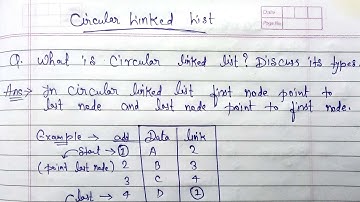 Circular Linked List
Date
Page No.
Q. What is Circular linked list? Discuss its types.
Ans→ In Circular linked list first node point to
last node and last node point to first node.
Example → add Data Link
Start → 1 A 2
(point last node) 2 B 3
3 C 4
last → 4 D 1